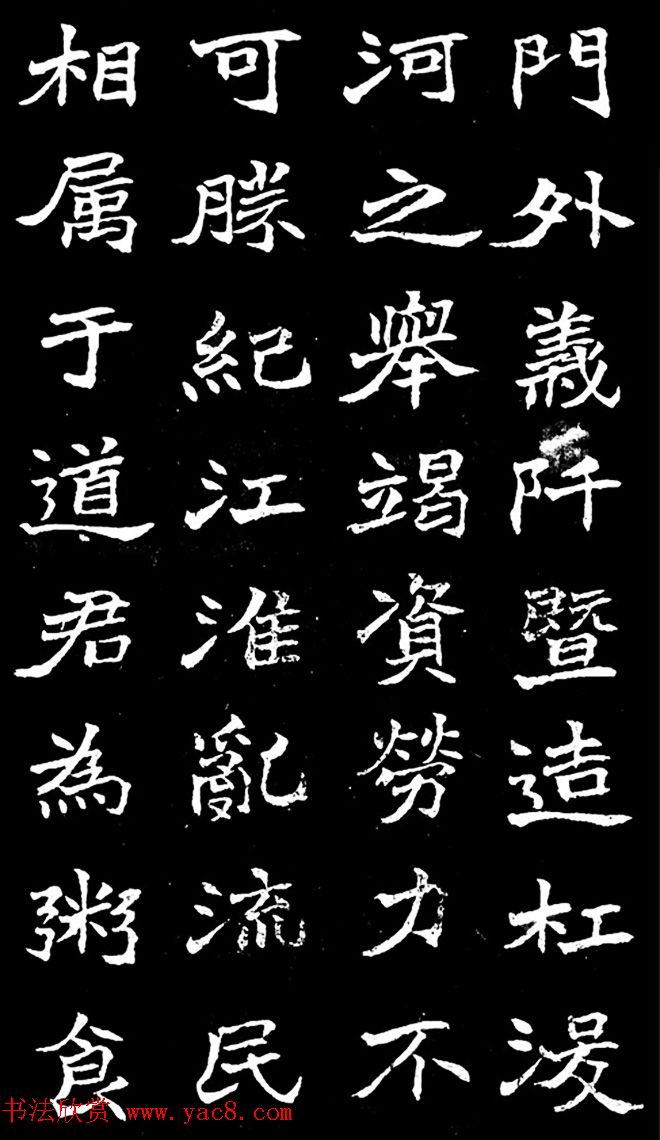 門外義阡暨造杠浚
河之舉竭資勞力不
可勝紀江淮亂流民
相属于道君為粥食
书法欣赏 www.yac8.com